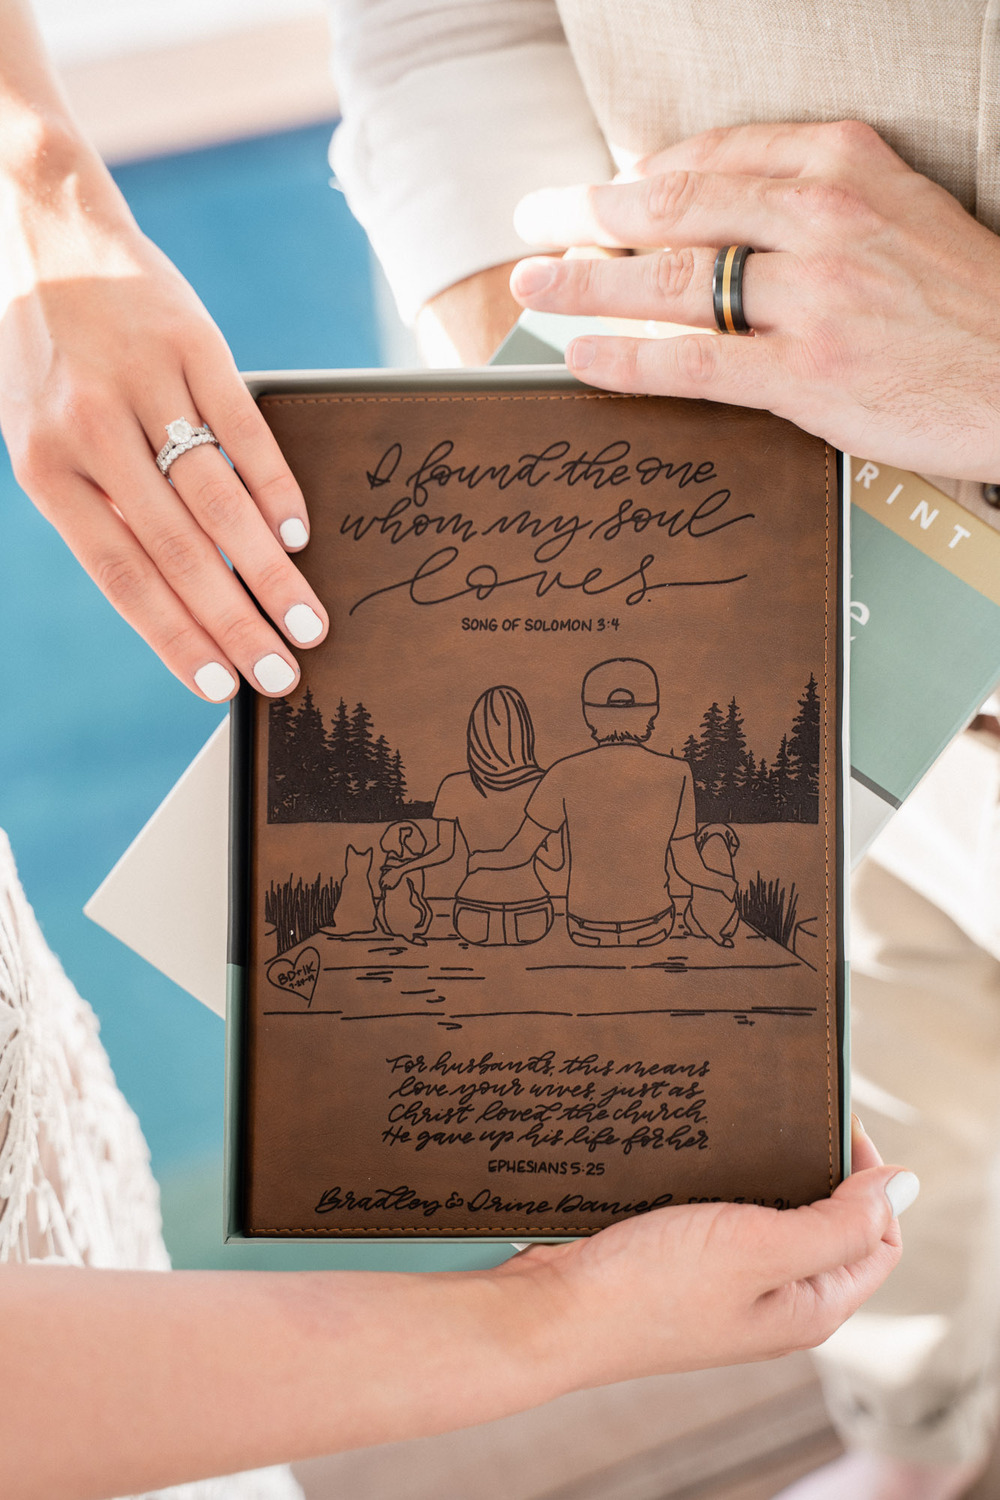 I found the one
whom my soul
loves.
SONG OF SOLOMON 3:4
RINT
e
BD+IK
For husbands, this means
love your wives, just as
Christ loved the church.
He gave up his life for her.
EPHESIANS 5:25
Bradley & Irine Daniel